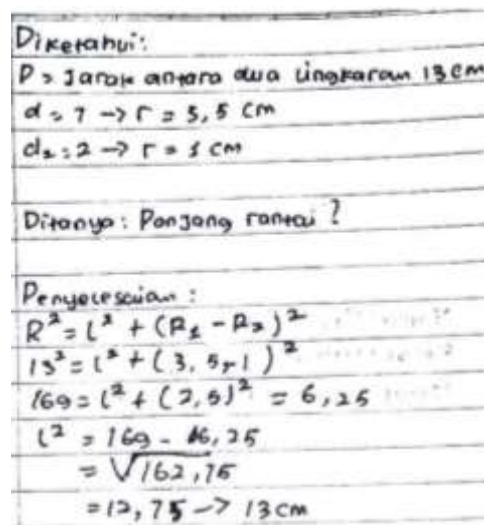 Diketahui:
P = Jarak antara dua lingkaran 13 cm
d = 7 -> r = 3,5 cm
d₂ = 2 -> r = 1 cm
Ditanya: Panjang rantai?
Penyelesaian:
R² = l² + (R₁ - R₂)²
13² = l² + (3,5 - 1)²
169 = l² + (2,5)² = 6,25
l² = 169 - 6,25
= √162,75
= 12,75 -> 13 cm